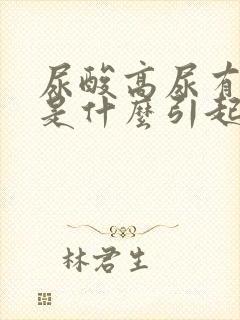 尿酸高尿有
是什麼引起
林君生